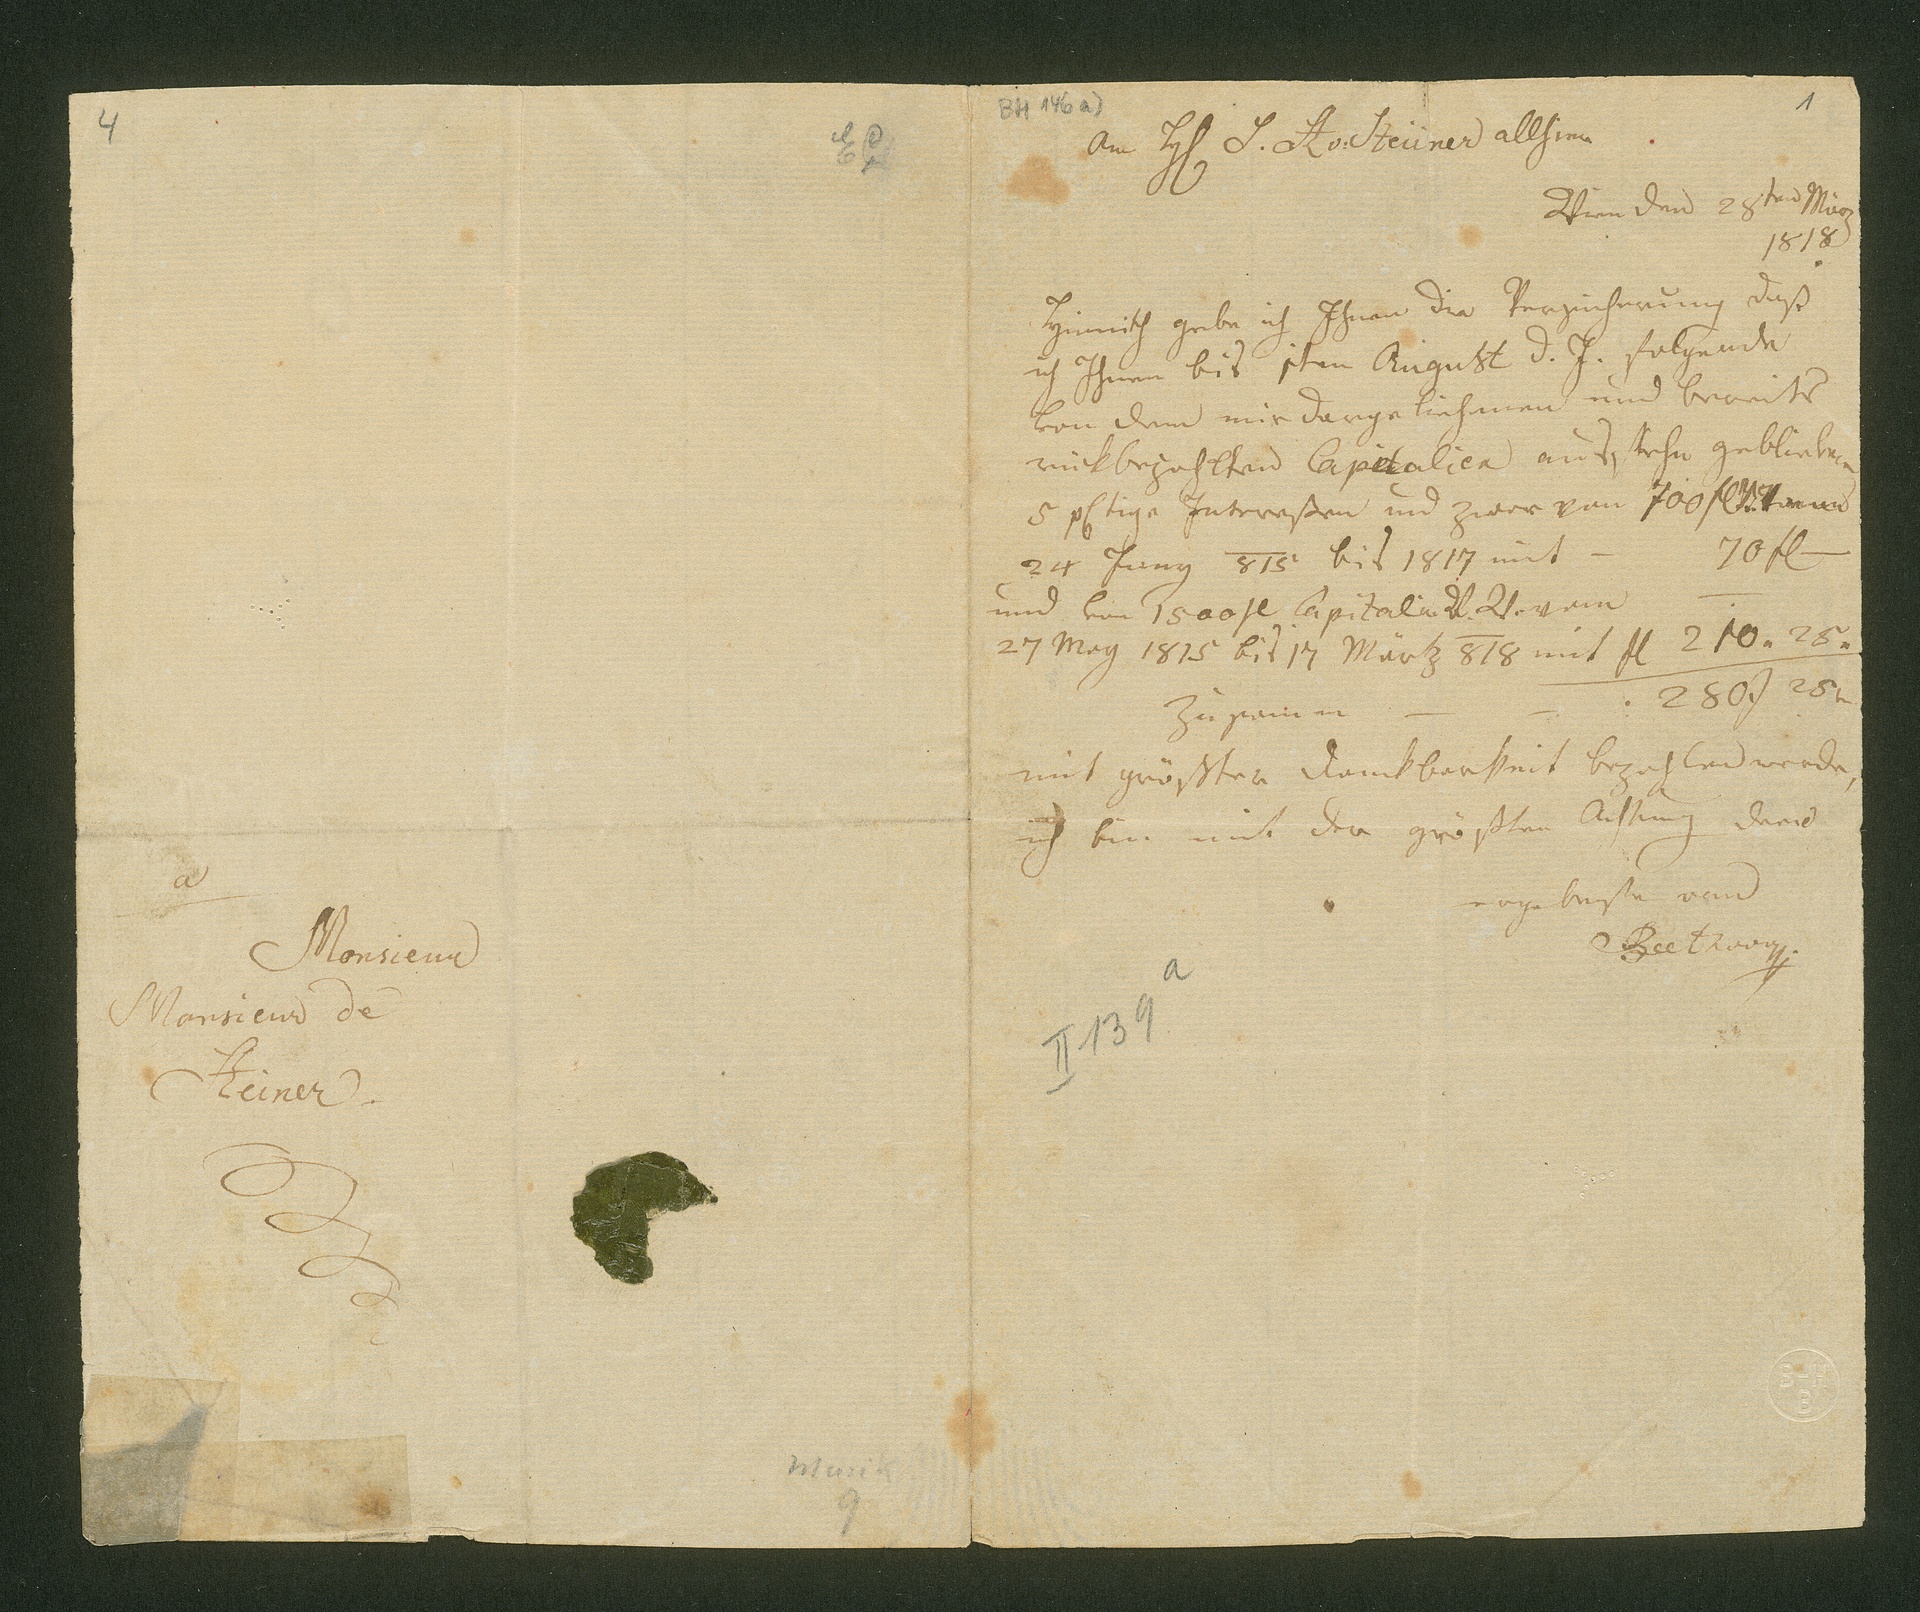 4
a
Monsieur
Monsieur de
Steiner.
Musik
9
BH 146 a)
1
An H. S. A v: Steiner allhier
Wien den 28ten März
1818
Hiermith gebe ich Ihnen die Versicherung daß
ich Ihnen bis 1ten August d. J. folgende
von dem mir dargeliehenen und bereits
rückbezahlten Capitalien ausstehn gebliebene
5 pctige Interessen und zwar von 700 fl
24 Juny 815 bis 1817 mit – 70 fl —
und von 1500 fl Capital in W. W. vom
27 May 1815 bis 17 Märtz 818 mit fl 210. 25.
Zusamen — — : 280 25
mit größter Dankbarkeit bezahlen werde,
ich bin mit der größten Achtung dero
ergebenster van
Beethoven
II 139 a
B-H
B